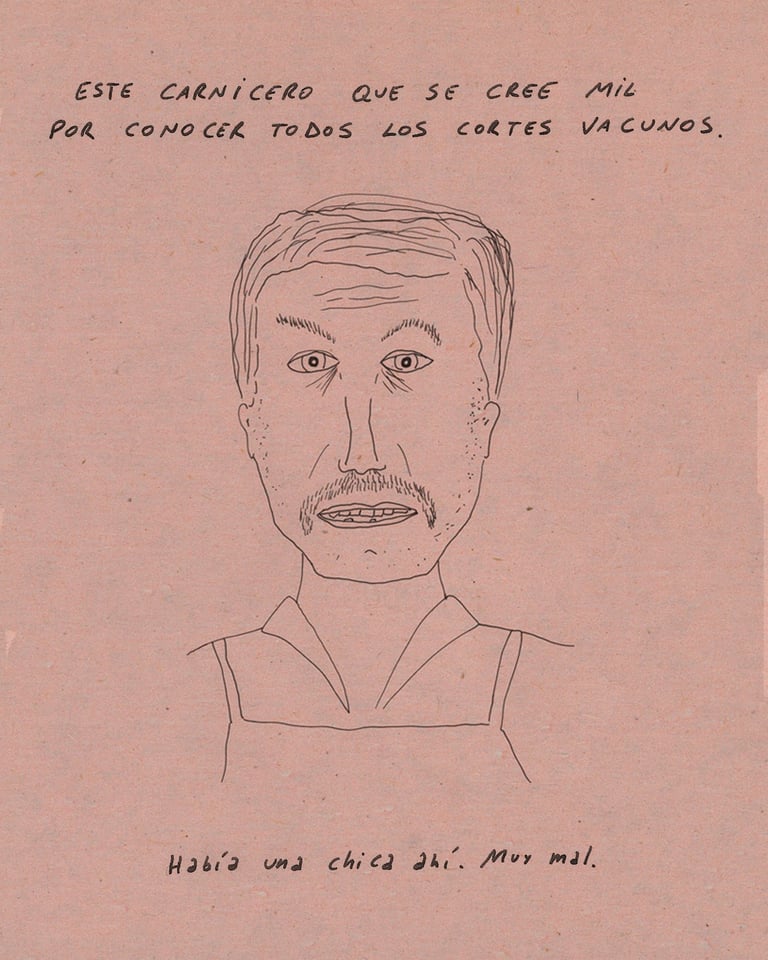 ESTE CARNICERO QUE SE CREE MIL
POR CONOCER TODOS LOS CORTES VACUNOS.
Había una chica ahí. Muy mal.